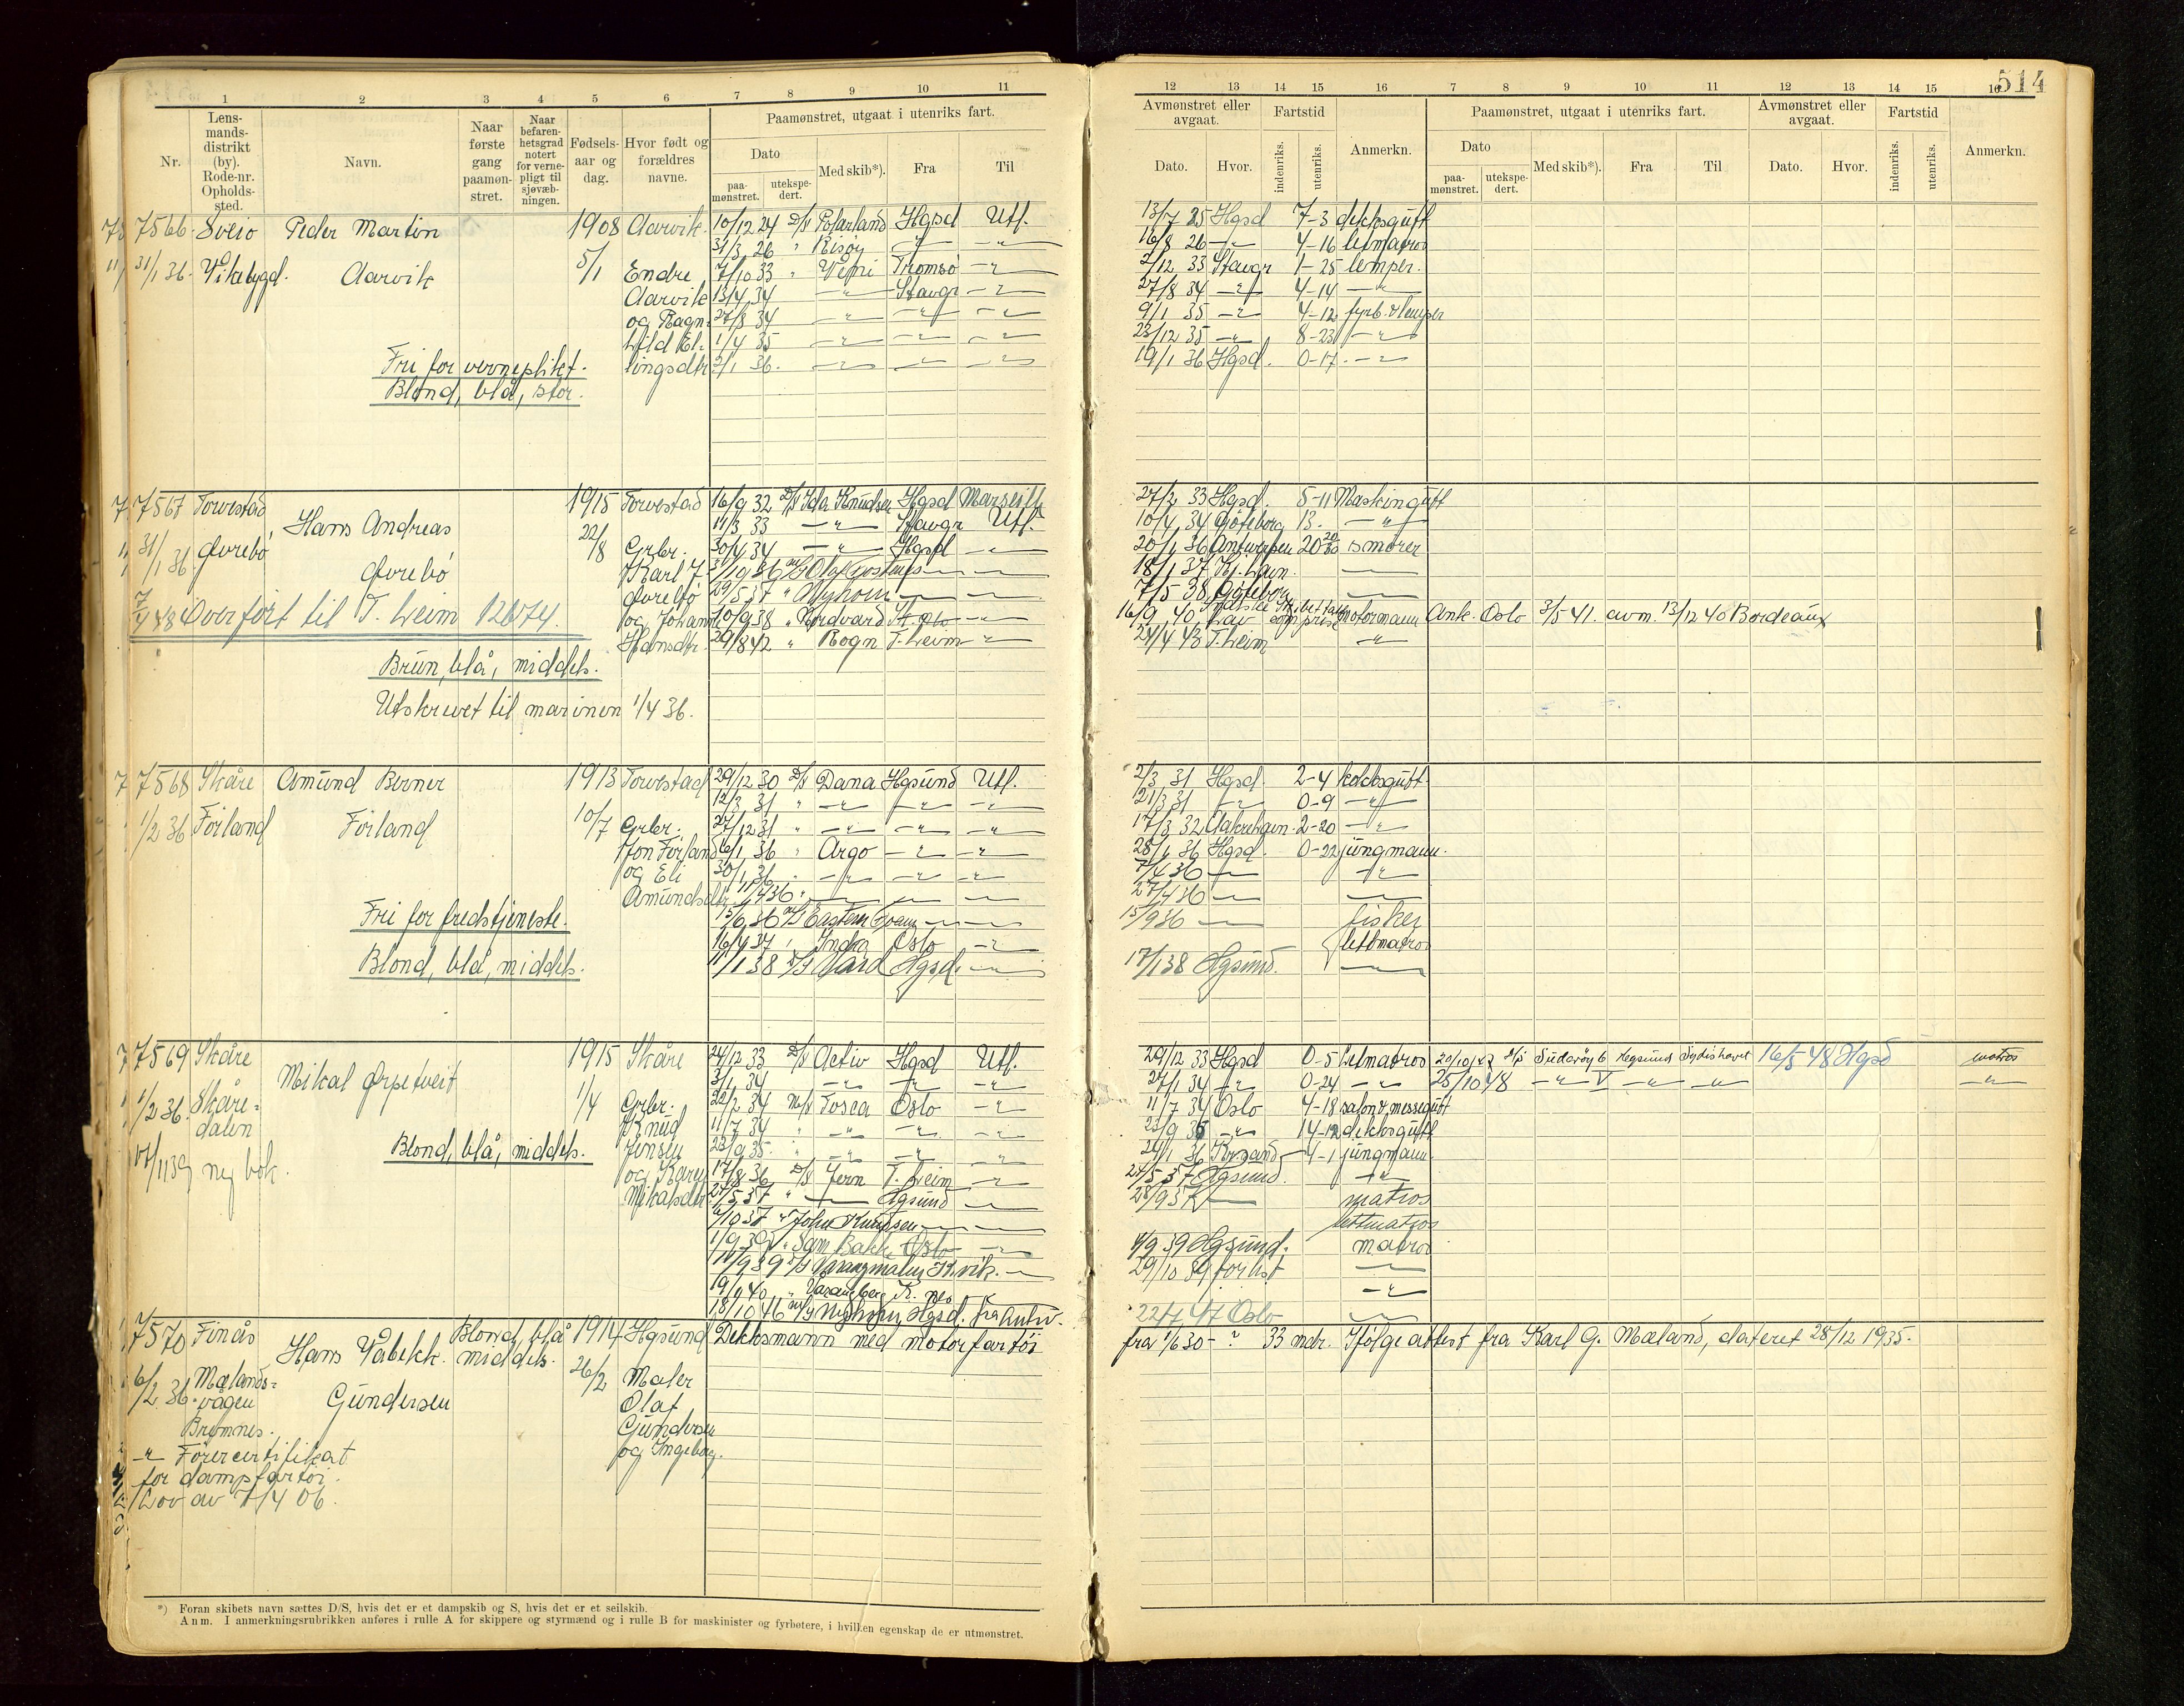 514
1 2 3 4 5 6 7 8 9 10 11
Nr.
Lens-mands-distrikt (by). Rode-nr. Opholds-sted.
Navn.
Naar første gang paamøn-stret.
Naar befaren-hetsgrad notert for verne-pligt til sjøvæb-ningen.
Fødsels-aar og dag.
Hvor født og forældres navne.
Paamønstret, utgaat i utenriks fart.
Dato
paa-mønstret.
utekspe-dert.
Med skib*).
Fra
Til
12 13 14 15 16 7 8 9 10 11 12 13 14 15 16
Avmønstret eller avgaat.
Dato.
Hvor.
Fartstid
indenriks.
utenriks.
Anmerkn.
Paamønstret, utgaat i utenriks fart.
Dato
paa-mønstret.
utekspe-dert.
Med skib*).
Fra
Til
Avmønstret eller avgaat.
Dato.
Hvor.
Fartstid
indenriks.
utenriks.
Anmerkn.
7566 Sveio Peder Martin 1908 Aarvik. 10/12 24 D/S Polarland Hgsd Utl. 13/7 25 Hgsd 7-3 dekksgutt
31/3 26 " Risøy " " 16/8 26 " 4-16 letmatros
31/1 36. Vikebygd. Aarvik 5/1 Endre 7/10 33 " Tromsø " 2/12 33 Stavgr 1-25 lemper.
Aarvik 13/4 34 " Stavgr " 27/8 34 " 4-14 "
og Ragn- 27/8 34 " " " 9/1 35 " 4-12 fyrb. & lemper
hild El- 1/4 35 " " " 23/12 35 " 8-23 "
Fri for verneplikt. lingsdtr 2/1 36. " " " 19/1 36 Hgsd. 0-17. "
Blond, blå, stor.
7567 Torvestad Hans Andreas 1915 Torvestad 16/9 32 D/S Ida Knudsen Hgsd Marseille 27/2 33 Hgsd. 5-11 Maskingutt
11/3 33 " Stavgr Utl. 10/4 34 Göteborg 13. "
31/1 36. Øvrebö Øvrebö 22/8 Grbr. 30/4 34 " Hgsd " 20/1 36 Antwerpen 20 smörer
Karl J. 18/1 37 Kj.havn. "
Øvrebö 29/5 37 " Nyhorn " " 7/5 38 Göteborg "
7/4 48 Overfört til T.heim 12674. og Johanne 10/9 38 " Nordvard 16/9 40 motormann Ank. Oslo 3/5 41. avm. 13/12 40 Bordeaux
Hansdtr. 29/8 42 " Rogn T.heim " 24/4 43 T.heim "
Brun, blå, middels.
Utskrevet til marinen 1/4 36.
7568 Skåre Amund Berner 1913 Torvestad 29/12 30 D/S Dana Hgsund Utl. 2/3 31 Hgsd. 2-4 kokksgutt.
12/3 31 " " " " 21/3 31 " 0-9 "
1/2 36 Förland Förland 10/7 Grbr. 27/12 31 " " " " 17/3 32 Aakrehavn. 2-20 "
Jon Förland 6/1 36 " Argo " " 28/1 36 Hgsd. 0-22 jungmann.
og Eli 30/1 36 " " " " 7/4 36 " "
Amundsdtr. 11/4 36 " " " " 27/4 36 " "
Fri for fredstjeneste. 15/6 36 M/S Eastern Gram " " 15/9 36 " fisker
16/4 37 " Indra Oslo " lettmatros
Blond, blå, middels. 11/1 38 D/S Vard Hgsd. " 17/1 38 Hgsund. "
7569 Skåre Mikal Ørpetveit 1915 Skåre 24/12 33 D/S Activ Hgsd Utl. 29/12 33 Hgsd 0-5 Letmatros 20/10 47 D/S Suderöy 6 Hegsund Sydishavet 16/5 48 Hgsd matros
3/1 34 " " " 27/1 34 " 0-24 " 25/10 48 " V " " "
1/2 36. Skåre-dalen 1/4 Grbr. 22/2 34 M/S Tosca Oslo " 11/7 34 Oslo 4-18 salon & messegutt
Knud 11/7 34 " " " " 23/9 35 " 14-12 dekksgutt
Blond, blå, middels. Jensen 23/9 35. " " " " 24/1 36 Kr.sand 4-1 jungmann
17/11 39 ny bok. og Karen 17/8 36 D/S Jern T.heim " 24/5 37 Hgsund. "
Mikalsdtr 27/5 37 " " Hgsund " 28/9 37 " matros
6/10 37 " John Knudsen " " lettmatros
1/9 39 " Sam Bakke Oslo " 4/9 39 Hgsund. matros
11/9 39 D/S Varangmalm " 29/10 39 forlist "
19/1 40 " Varangberg "
18/10 46 M/S Hgsd. 22/7 47 Oslo "
7570 Finås Hans Våbekk Blond, blå middels. 1914 Hgsund Dekksmann med motorfartöi fra 1/6 30 - ? 33 mdr. Ifölge attest fra Karl G. Mæland, dateret 28/12 1935.
6/2 36. Mælands-vågen Gundersen 26/2 Maler
Bremnes. Olaf
Gundersen
" Förercertifikat og Ingeborg.
for dampfartöi.
Lov av 7/4 06.
*) Foran skibets navn sættes D/S, hvis det er et dampskib og S, hvis det er et seilskib.
Anm. I anmerkningsrubrikken anføres i rulle A for skippere og styrmænd og i rulle B for maskinister og fyrbøtere, i hvilken egenskap de er utmønstret.